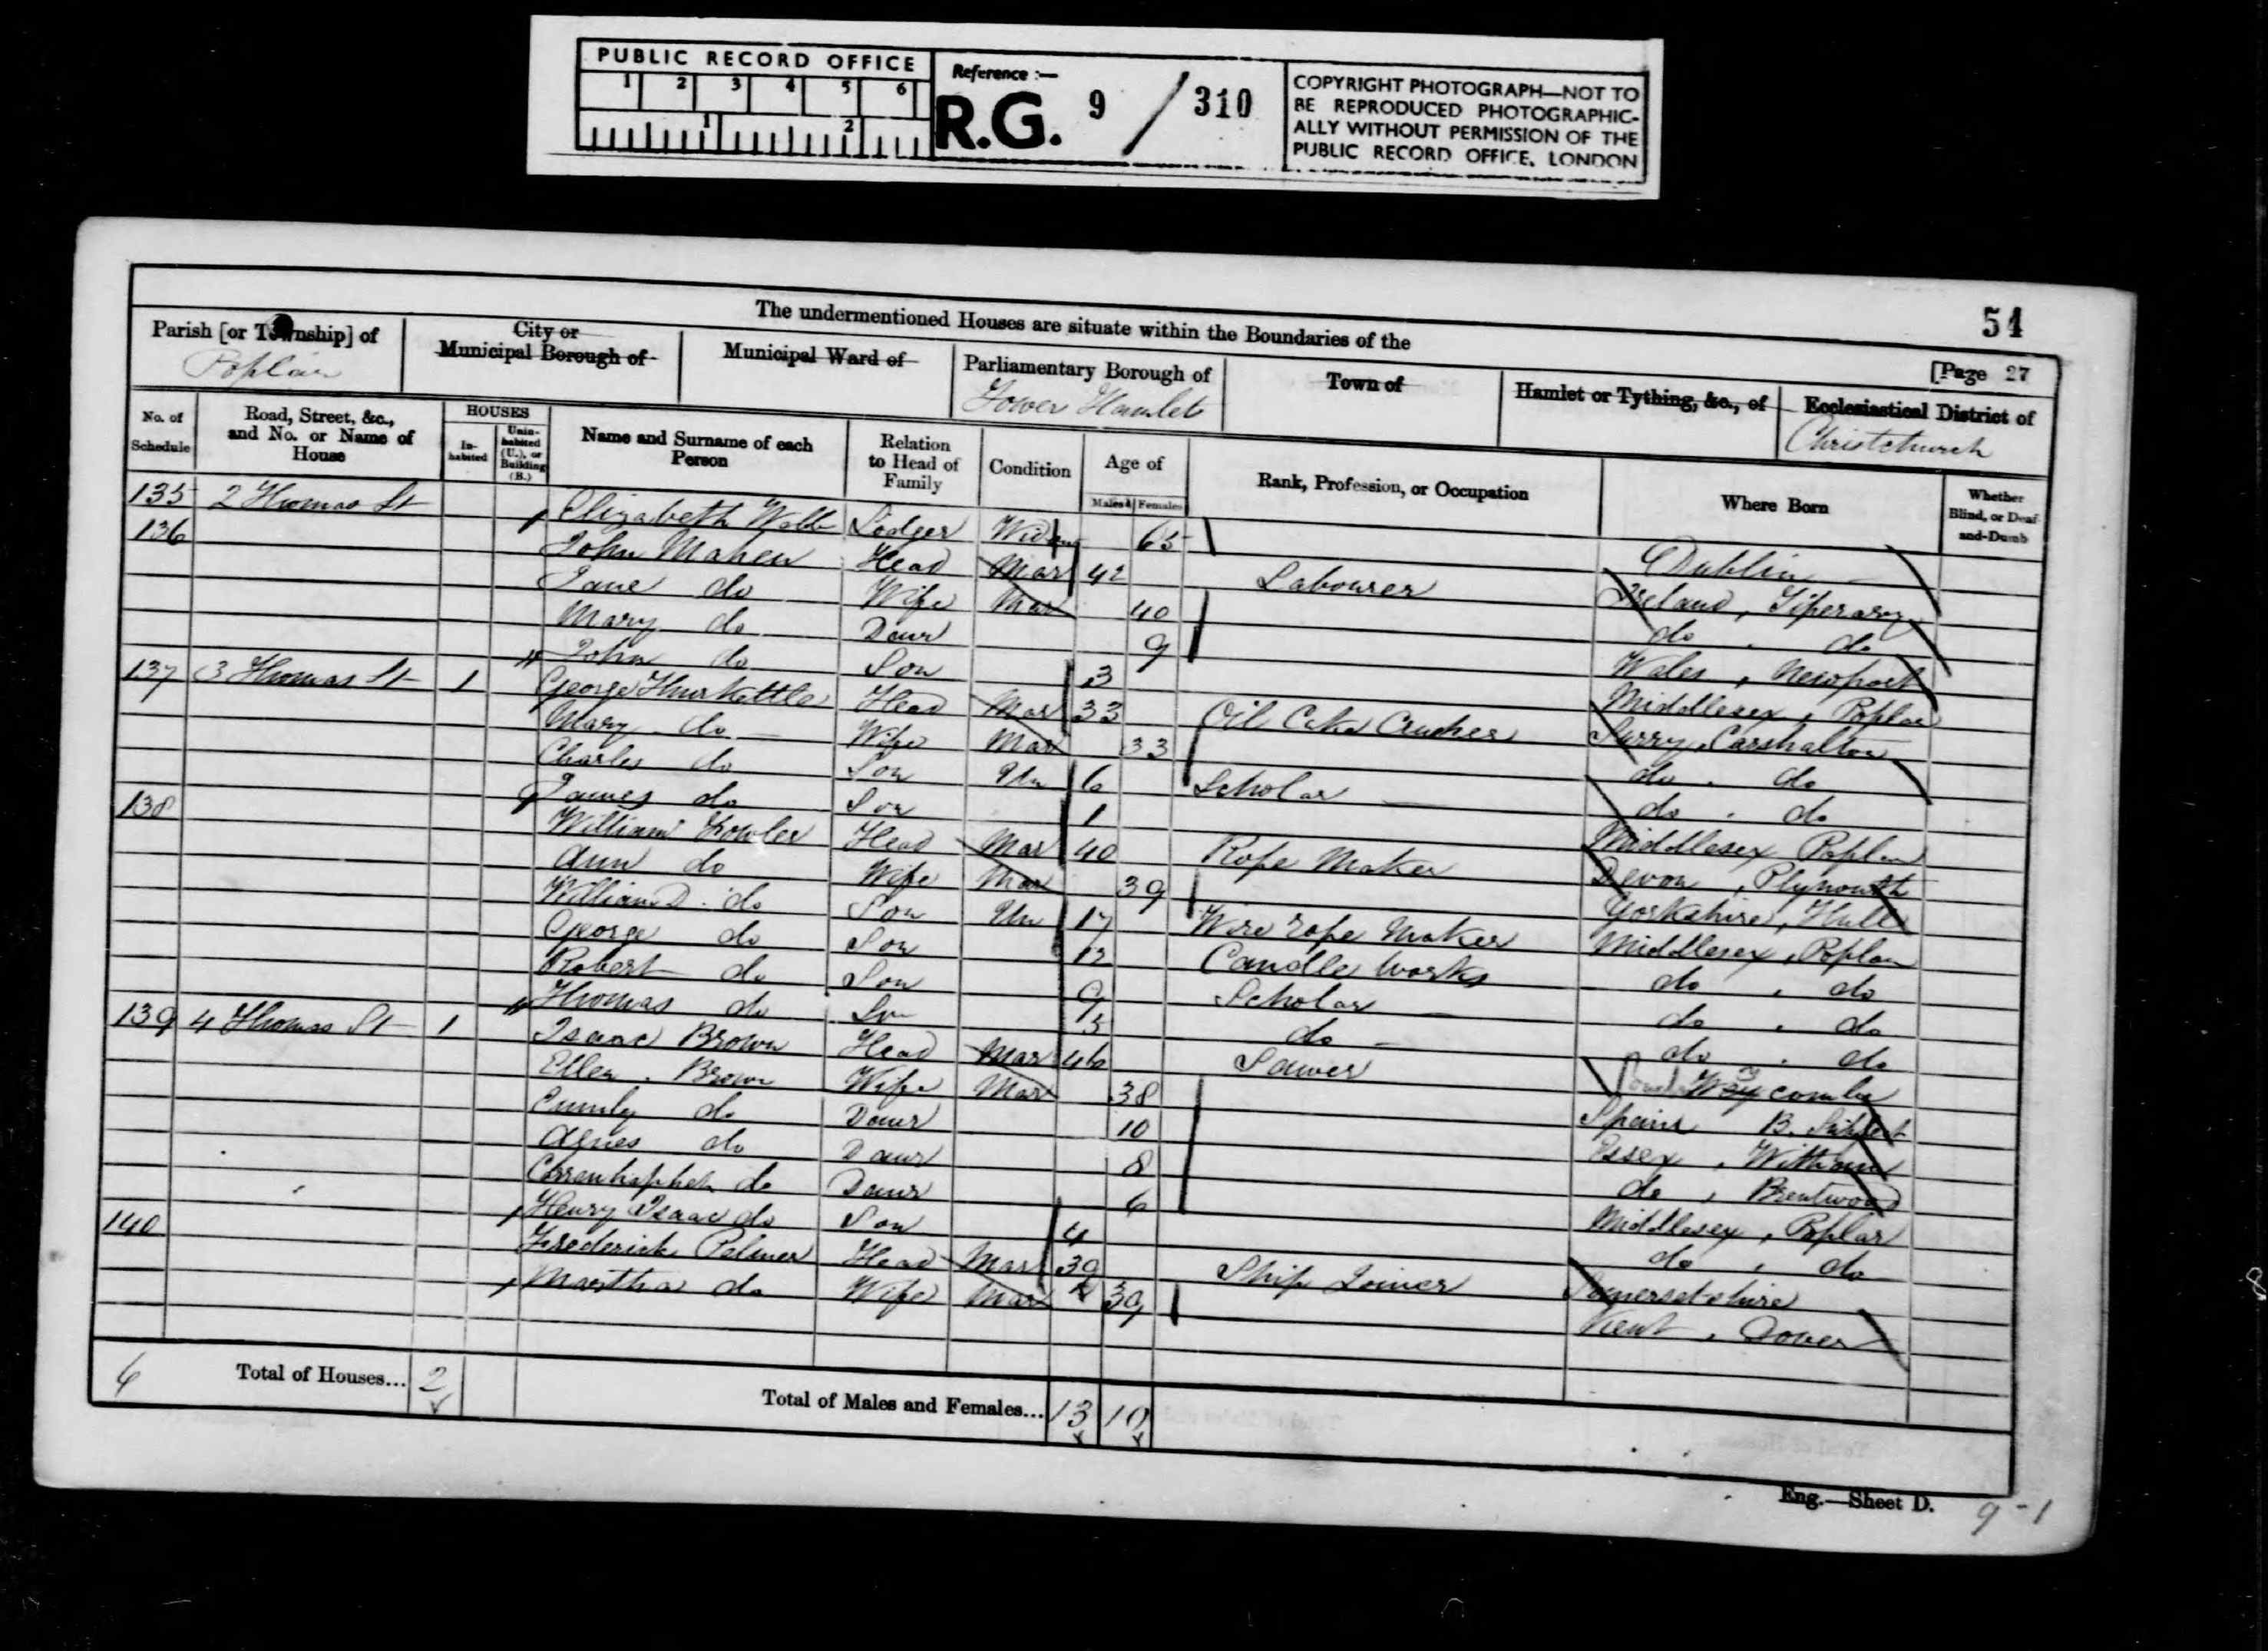 PUBLIC RECORD OFFICE
1 2 3 4 5 6
1 2
Reference :—
R.G. 9 / 310
COPYRIGHT PHOTOGRAPH—NOT TO
BE REPRODUCED PHOTOGRAPHIC-
ALLY WITHOUT PERMISSION OF THE
PUBLIC RECORD OFFICE, LONDON
51
The undermentioned Houses are situate within the Boundaries of the
[Page 27
Parish [or Township] of
Poplar
City or
Municipal Borough of
Municipal Ward of
Parliamentary Borough of
Tower Hamlets
Town of
Hamlet or Tything, &c., of
Ecclesiastical District of
Christchurch
No. of Schedule
Road, Street, &c., and No. or Name of House
HOUSES
In-habited
Unin-habited (U.), or Building (B.)
Name and Surname of each Person
Relation to Head of Family
Condition
Age of
Males Females
Rank, Profession, or Occupation
Where Born
Whether Blind, or Deaf-and-Dumb
135 2 Thomas St Elizabeth Lodger 65 Dublin
136 John Head Mar 42 Labourer Ireland, Tiperary
Jane do Wife Mar 40 do , do
Mary do Daur 9 Wales, Newport
John do Son 3 Middlesex, Poplar
137 3 Thomas St 1 George Thurkettle Head Mar 33 Oil Cake Crusher Surry, Carshalton
Mary do Wife Mar 33 do . do
Charles do Son Un 6 Scholar do . do
James do Son 1 Middlesex Poplar
138 William Fowler Head Mar 40 Rope Maker Devon, Plymouth
Ann do Wife Mar 39 Yorkshire, Hull
William D. do Son Un 17 Wire rope Maker Middlesex, Poplar
George do Son Candle Works do , do
Robert do Son 9 Scholar do , do
Thomas do Son 5 do do . do
139 4 Thomas St 1 Isaac Brown Head Mar 46 Sawer
Ellen . Brown Wife Mar 38 Spain
Emily do Daur 10 Essex, Witham
Agnes do Daur 8 do , Brentwood
do Daur 6 Middlesex, Poplar
Henry Isaac do Son 4 do , do
140 Frederick Palmer Head Mar 39 Ship Joiner Somersetshire
Martha do Wife Mar 39 Kent, Dover
Total of Houses... 2
Total of Males and Females... 13 10
Eng.—Sheet D.
9-1